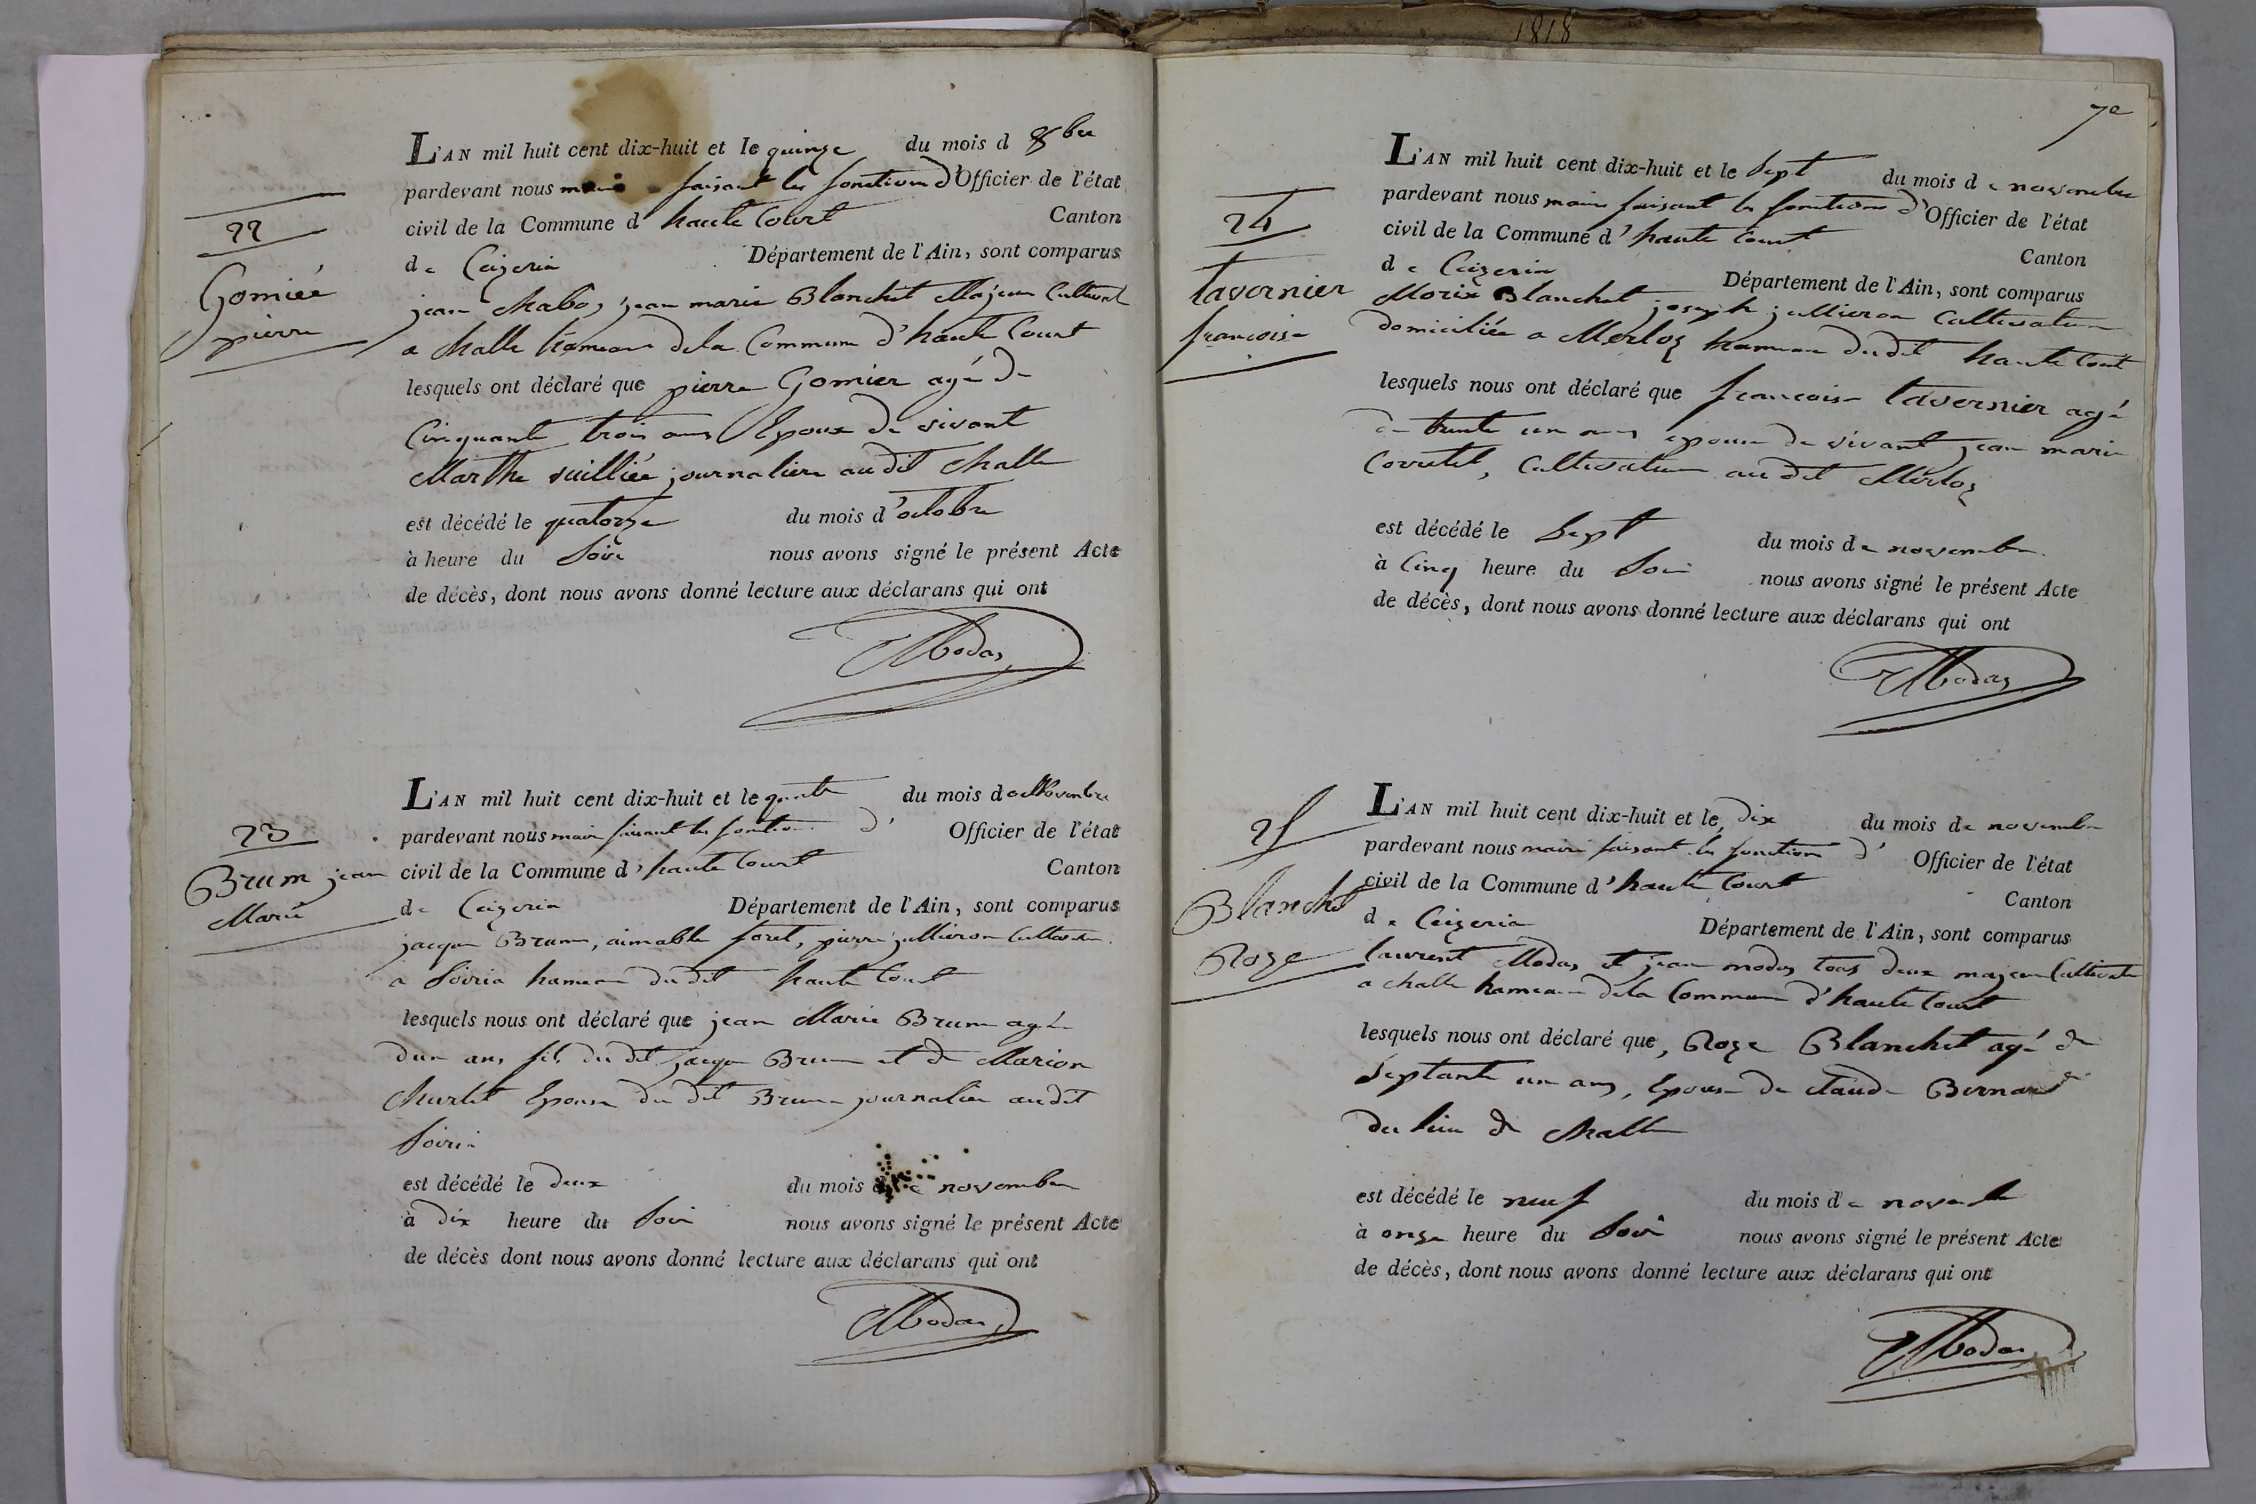 1818
22
Gomiée
pierre
L'AN mil huit cent dix-huit et le quinze du mois d 8bre
pardevant nous maire faisant les fonctions d'Officier de l'état
civil de la Commune d haute Court Canton
de Ceizeria Département de l'Ain, sont comparus
jean Chabos jean marie Blanchet Majeur Cultivat
a challe hameau dela Commune d'haute Court
lesquels ont déclaré que pierre Gomier agé de
Cinquante trois ans Epoux de vivant
Marthe vuilliée journaliere audit challe
est décédé le quatorze du mois d'octobre
à heure du Soir nous avons signé le présent Acte
de décès, dont nous avons donné lecture aux déclarans qui ont
Modas
23
Brum jean
Marie
L'AN mil huit cent dix-huit et le quatre du mois de Novembre
pardevant nous maire faisant les fonctions d' Officier de l'état
civil de la Commune d'haute Court Canton
de Ceizeria Département de l'Ain, sont comparus
jacque Brum, aimable foret, pierre jullieron Cultivateur
a Soiria hameau dudit haute Court
lesquels nous ont déclaré que jean Marie Brum agé
dun ans fils dudit jacque Brum et de Marion
Churlet Epouse du dit Brum journalier audit
Soiria
est décédé le deux du mois de novembre
à dix heure du Soir nous avons signé le présent Acte
de décès dont nous avons donné lecture aux déclarans qui ont
Modas
72
24
tavernier
francoise
L'AN mil huit cent dix-huit et le Sept du mois de novembre
pardevant nous maire faisant les fonctions d'Officier de l'état
civil de la Commune d'haute Court Canton
de Ceizeria Département de l'Ain, sont comparus
Morix Blanchet joseph jullieron Cultivateur
domiciliée a Merloz hameau dudit haute Court
lesquels nous ont déclaré que francoise tavernier agé
de trente un ans epouse de vivant jean marie
Corretet, Cultivateur audit Merloz
est décédé le Sept du mois de novembre
à Cinq heure du Soir nous avons signé le présent Acte
de décès, dont nous avons donné lecture aux déclarans qui ont
Modas
25
Blanchet
Roze
L'AN mil huit cent dix-huit et le dix du mois de novembre
pardevant nous maire faisant les fonction d' Officier de l'état
civil de la Commune d'haute Court Canton
de Ceizeria Département de l'Ain, sont comparus
laurent Modas et jean modas tous deux majeur Cultivate
a challe hameau dela Commune d'haute Court
lesquels nous ont déclaré que, Roze Blanchet agé de
Septante un ans, Epouse de claude Bernard
du lieu de challe
est décédé le neuf du mois de novembre
à onze heure du Soir nous avons signé le présent Acte
de décès, dont nous avons donné lecture aux déclarans qui ont
Modas